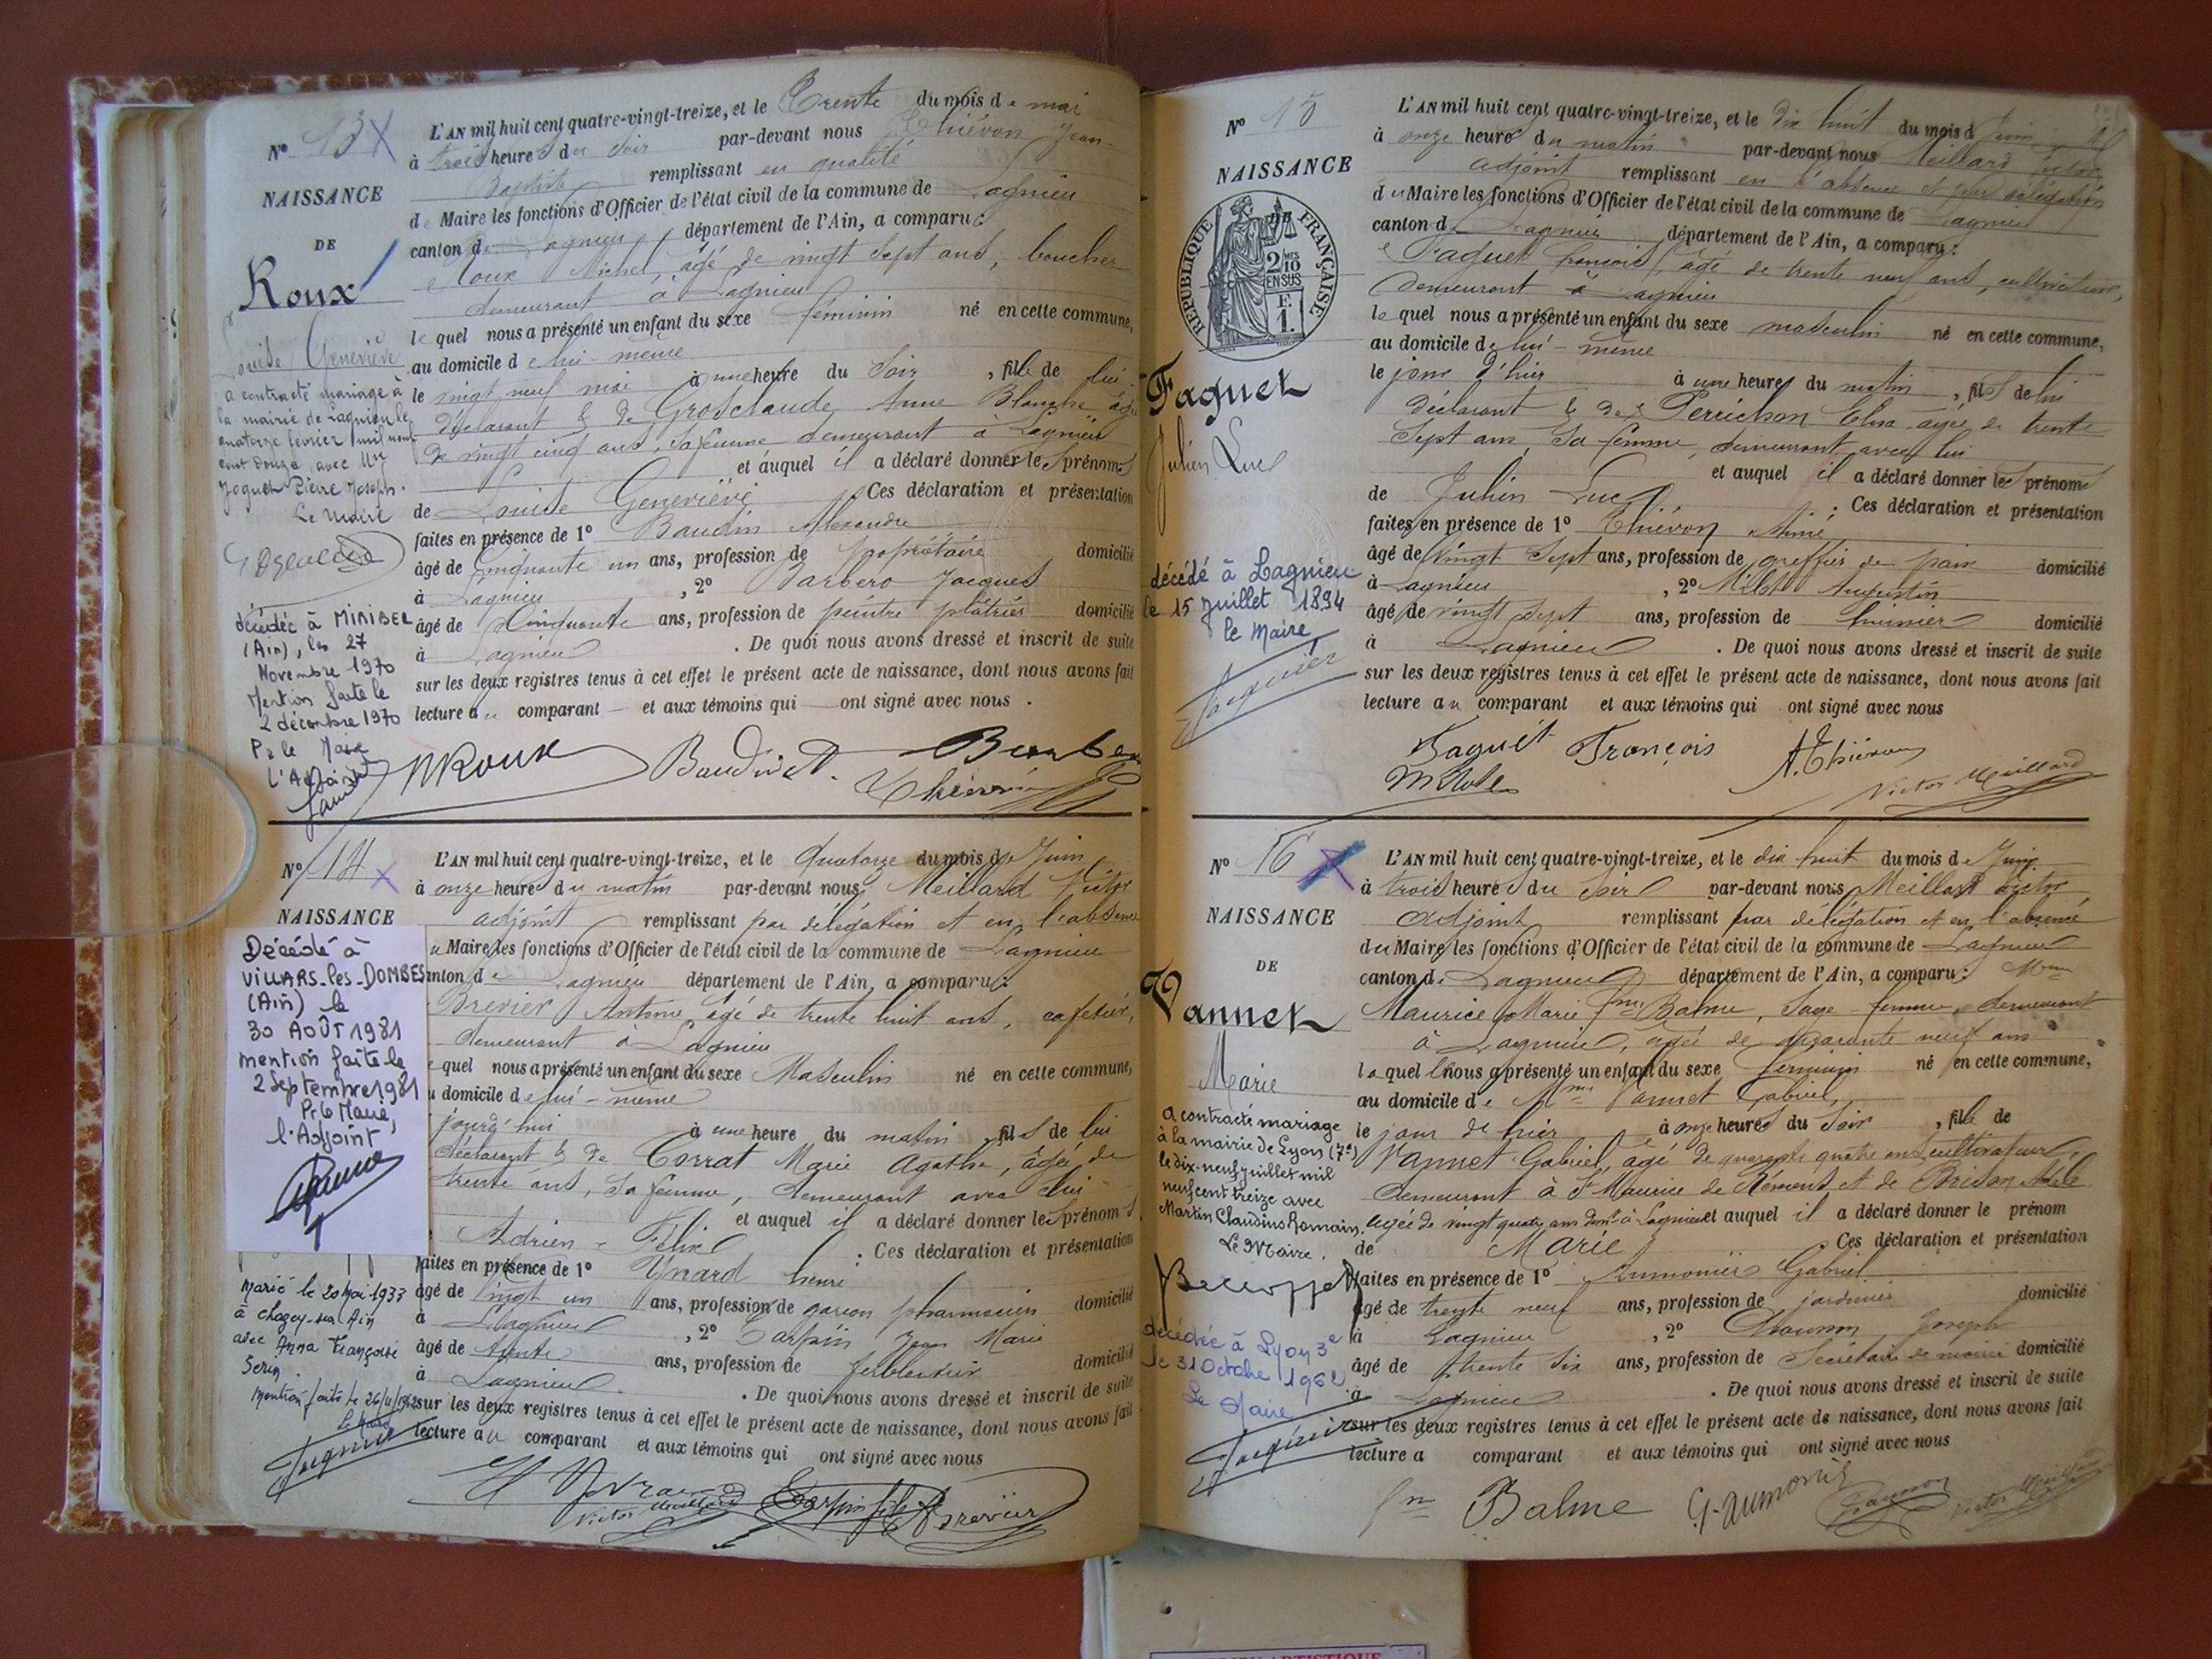 N° 13
NAISSANCE
DE
Roux
Louise Geneviève
a contracté mariage à
la mairie de Lagnieu le
quatorze février mil neuf
cent douze, avec Mr
Joguet Pierre Joseph.
Le Maire
décédée à MIRIBEL
(Ain), le 27
Novembre 1970
Mention faite le
2 décembre 1970
Pr le Maire
L'Adjoint
L'AN mil huit cent quatre-vingt-treize, et le Trente du mois de mai
à trois heures du soir par-devant nous Thiévon Jean-
Baptiste remplissant en qualité
de Maire les fonctions d'Officier de l'état civil de la commune de Lagnieu
canton de Lagnieu, département de l'Ain, a comparu :
Roux Michel, âgé de vingt sept ans, boucher
demeurant à Lagnieu
lequel nous a présenté un enfant du sexe féminin né en cette commune,
au domicile de lui-même
le vingt neuf mai à une heure du soir, fille de lui
déclarant & de Grosclaude Anne Blanche âgée
de vingt cinq ans, sa femme demeurant à Lagnieu
et auquel il a déclaré donner les prénoms
de Louise Geneviève Ces déclaration et présentation
faites en présence de 1° Baudin Alexandre
âgé de Cinquante un ans, profession de propriétaire domicilié
à Lagnieu, 2° Barbero Jacques
âgé de Cinquante ans, profession de peintre plâtrier domicilié
à Lagnieu. De quoi nous avons dressé et inscrit de suite
sur les deux registres tenus à cet effet le présent acte de naissance, dont nous avons fait
lecture au comparant et aux témoins qui ont signé avec nous.
MRoux Baudin A. Barbero
Thiévon
N° 14
NAISSANCE
Décédé à
VILLARS-les-DOMBES
(Ain) le
30 AOÛT 1981
mention faite le
2 Septembre 1981
Pr le Maire,
l'Adjoint
Marié le 20 Mai 1933
à Chazey-sur-Ain
avec Anna Françoise
Serin
mention faite le
Le Maire
L'AN mil huit cent quatre-vingt-treize, et le Quatorze du mois de Juin
à onze heures du matin par-devant nous Meillard Victor
adjoint remplissant par délégation et en l'absence
u Maire les fonctions d'Officier de l'état civil de la commune de Lagnieu
anton de Lagnieu département de l'Ain, a comparu :
Brevier Antoine, âgé de trente huit ans, cafetier,
demeurant à Lagnieu
equel nous a présenté un enfant du sexe Masculin né en cette commune,
u domicile de lui-même
jourd'hui à une heure du matin, fils de lui
déclarant & de Corrat Marie Agathe, âgée de
trente ans, sa femme, demeurant avec lui
et auquel il a déclaré donner les prénoms
Adrien - Félix. Ces déclaration et présentation
faites en présence de 1° Yvrard henri
âgé de vingt un ans, profession de garçon pharmacien domicilié
à Lagnieu, 2° Carpin Jean Marie
âgé de trente ans, profession de ferblantier domicilié
à Lagnieu. De quoi nous avons dressé et inscrit de suite
sur les deux registres tenus à cet effet le présent acte de naissance, dont nous avons fait
lecture au comparant et aux témoins qui ont signé avec nous
Victor Meillard Carpin fils Brevier
N° 15
NAISSANCE
RÉPUBLIQUE FRANÇAISE
2 MES
10
EN SUS
F.
1.
Faguet
Julien Luc
décédé à Lagnieu
le 15 juillet 1894
le Maire
L'AN mil huit cent quatre-vingt-treize, et le dix huit du mois de Juin
à onze heures du matin par-devant nous Meillard Victor
adjoint remplissant en l'absence et par délégation
du Maire les fonctions d'Officier de l'état civil de la commune de Lagnieu
canton de Lagnieu département de l'Ain, a comparu :
Faguet François, âgé de trente neuf ans, cultivateur,
demeurant à Lagnieu
lequel nous a présenté un enfant du sexe masculin né en cette commune,
au domicile de lui-même
le jour d'hier à une heure du matin, fils de lui
déclarant & de Perrichon Elisa âgée de trente
sept ans, sa femme, demeurant avec lui
et auquel il a déclaré donner les prénoms
de Julien Luc ; Ces déclaration et présentation
faites en présence de 1° Thiévon Aimé
âgé de Vingt Sept ans, profession de greffier de paix domicilié
à Lagnieu, 2° Augustin
âgé de vingt sept ans, profession de domicilié
à Lagnieu. De quoi nous avons dressé et inscrit de suite
sur les deux registres tenus à cet effet le présent acte de naissance, dont nous avons fait
lecture au comparant et aux témoins qui ont signé avec nous
Faguet François A. Thiévon
Victor Meillard
N° 16
NAISSANCE
DE
Vannet
Marie
a contracté mariage
à la mairie de Lyon (7e)
le dix-neuf juillet mil
neuf cent treize avec
Martin Claudius Romain.
Le Maire.
décédée à Lyon 3e
le 31 Octobre 1962
Le Maire
L'AN mil huit cent quatre-vingt-treize, et le dix huit du mois de Juin
à trois heures du soir par-devant nous Meillard Victor
adjoint remplissant par délégation et en l'absence
du Maire les fonctions d'Officier de l'état civil de la commune de Lagnieu
canton de Lagnieu département de l'Ain, a comparu : Mme
Maurice Marie fme Balme, Sage-femme, demeurant
à Lagnieu, âgée de quarante neuf ans
laquelle nous a présenté un enfant du sexe féminin né en cette commune,
au domicile de Mme Vannet Gabriel,
le jour de hier à onze heures du soir, fille de
Vannet Gabriel, âgé de quarante quatre ans, cultivateur,
demeurant à St Maurice de Rémens et de Brison Adèle
âgée de vingt quatre ans demt à Lagnieu et auquel il a déclaré donner le prénom
de Marie Ces déclaration et présentation
faites en présence de 1° Aumonier Gabriel
âgé de trente neuf ans, profession de jardinier domicilié
à Lagnieu, 2° Joseph
âgé de trente six ans, profession de Secrétaire de mairie domicilié
à Lagnieu. De quoi nous avons dressé et inscrit de suite
sur les deux registres tenus à cet effet le présent acte de naissance, dont nous avons fait
lecture a comparant et aux témoins qui ont signé avec nous
fme Balme G. Aumonier Victor Meillard